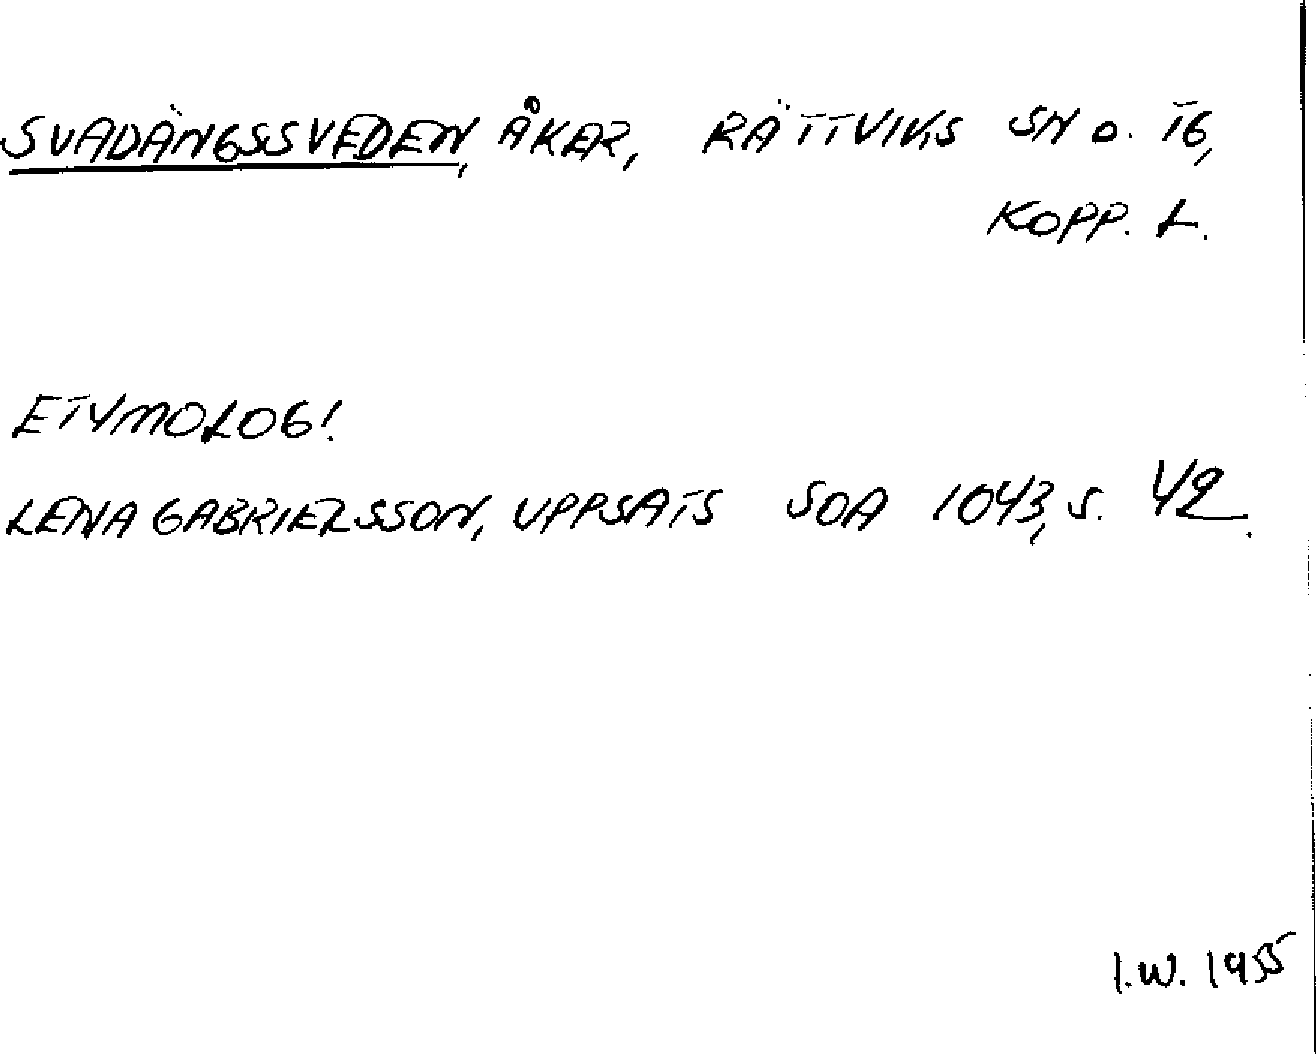 SVADÄNGSSVEDEN, ÅKER, RÄTTVIKS SN O. TG,
KOPP. L.
ETYMOLOGI.
LENA GABRIELSSON, UPPSATS SOA 1043, S. 42.
I.W. 1955